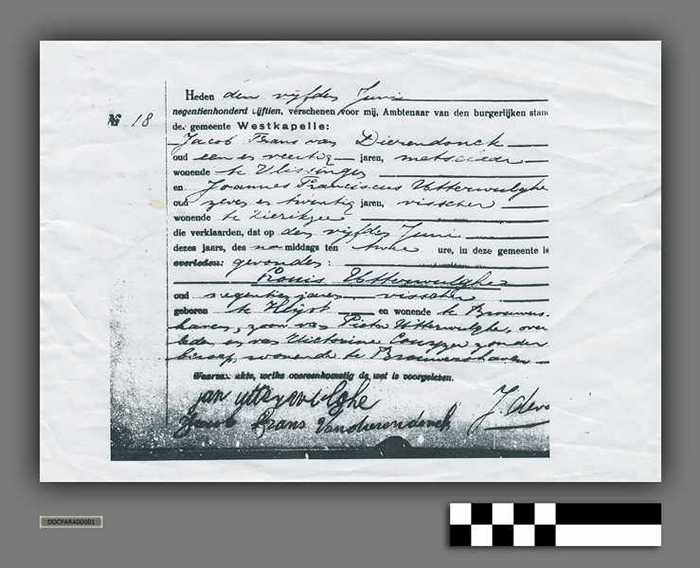 Heden den vijfden Juni
negentienhonderd vijftien, verschenen voor mij, Ambtenaar van den burgerlijken stan
№ 18
der gemeente Westkapelle:
Jacob Frans van Dierendonck
oud een en veertig jaren, metselaar
wonende te Vlissingen
en Joannes Franciscus Utterwulghe
oud zeven en twintig jaren, visscher
wonende te Zierikzee
die verklaarden, dat op den vijfden Juni
dezes jaars, des namiddags ten twee ure, in deze gemeente is
overleden: gevonden:
Louis Utterwulghe
oud negentien jaren visscher
geboren te Heijst en wonende te Brouwers-
haven, zoon van Pieter Utterwulghe, over
leden en van Victorine zonder
beroep wonende te Brouwershaven
Waarvan akte, welke overeenkomstig de wet is voorgelezen.
jan uttezwulghe
Jacob Frans Vandierendonck
J. deVo
DOCFARA00001